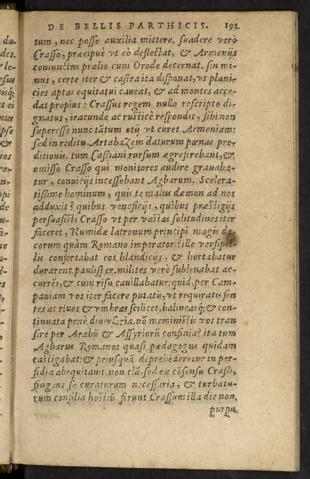 DE BELLIS PARTHICIS. 191
tum, nec posse auxilia mittere, suadere verò
Crasso, præcipuè vt eò deflectat, & Armenijs
coniunctim prælio cum Orode decernat. sin mi-
nus, certe iter & castra ita disponat, vt plani-
cies aptas equitatui caueat, & ad montes acce-
dat propius: Crassus regem nullo rescripto di-
gnatus, iracunde ac rusticè respondit, sibi non
superesse nunc otiũ vt curet Armeniam:
sed in reditu Artabazem daturum pœnas pro-
ditionis. tum Cassiani rursum ægre ferebant, &
omisso Crasso qui monitores audire grauaba-
tur, conuicijs incessebant Agbarum. Scelera-
tissime hominum, quis te malus dæmon ad nos
adduxit? quibus veneficijs, quibus præstigijs
persuasisti Crasso vt per vastas solitudines iter
faceret, Numidæ latronum principi magis de-
corum quàm Romano imperatori? ille versipel-
lis confortabat eos, blandicijs, & hortabatur
durarent paulisper. milites verò subleuabat ac-
currẽs, & cum risu cauillabatur: quid, per Cam-
paniam vos iter facere putatis, vt requiratis fon-
tes ac riuos & vmbras scilicet, balneaq; & con-
tinuata penè diuersoria. nõ meministis vos tran
sire per Arabũ & Assyriorũ confinia? ita tum
Agbarus Romanos quasi pædagogus quidam
castigabat: & priusquã deprehẽderetur in per-
fidia abequitauit. non clã. sed ex cõsensu Crassi,
fingens se curaturum necessaria, & turbatu-
rum consilia hostiũ. ferunt Crassum illa die non,
purpu